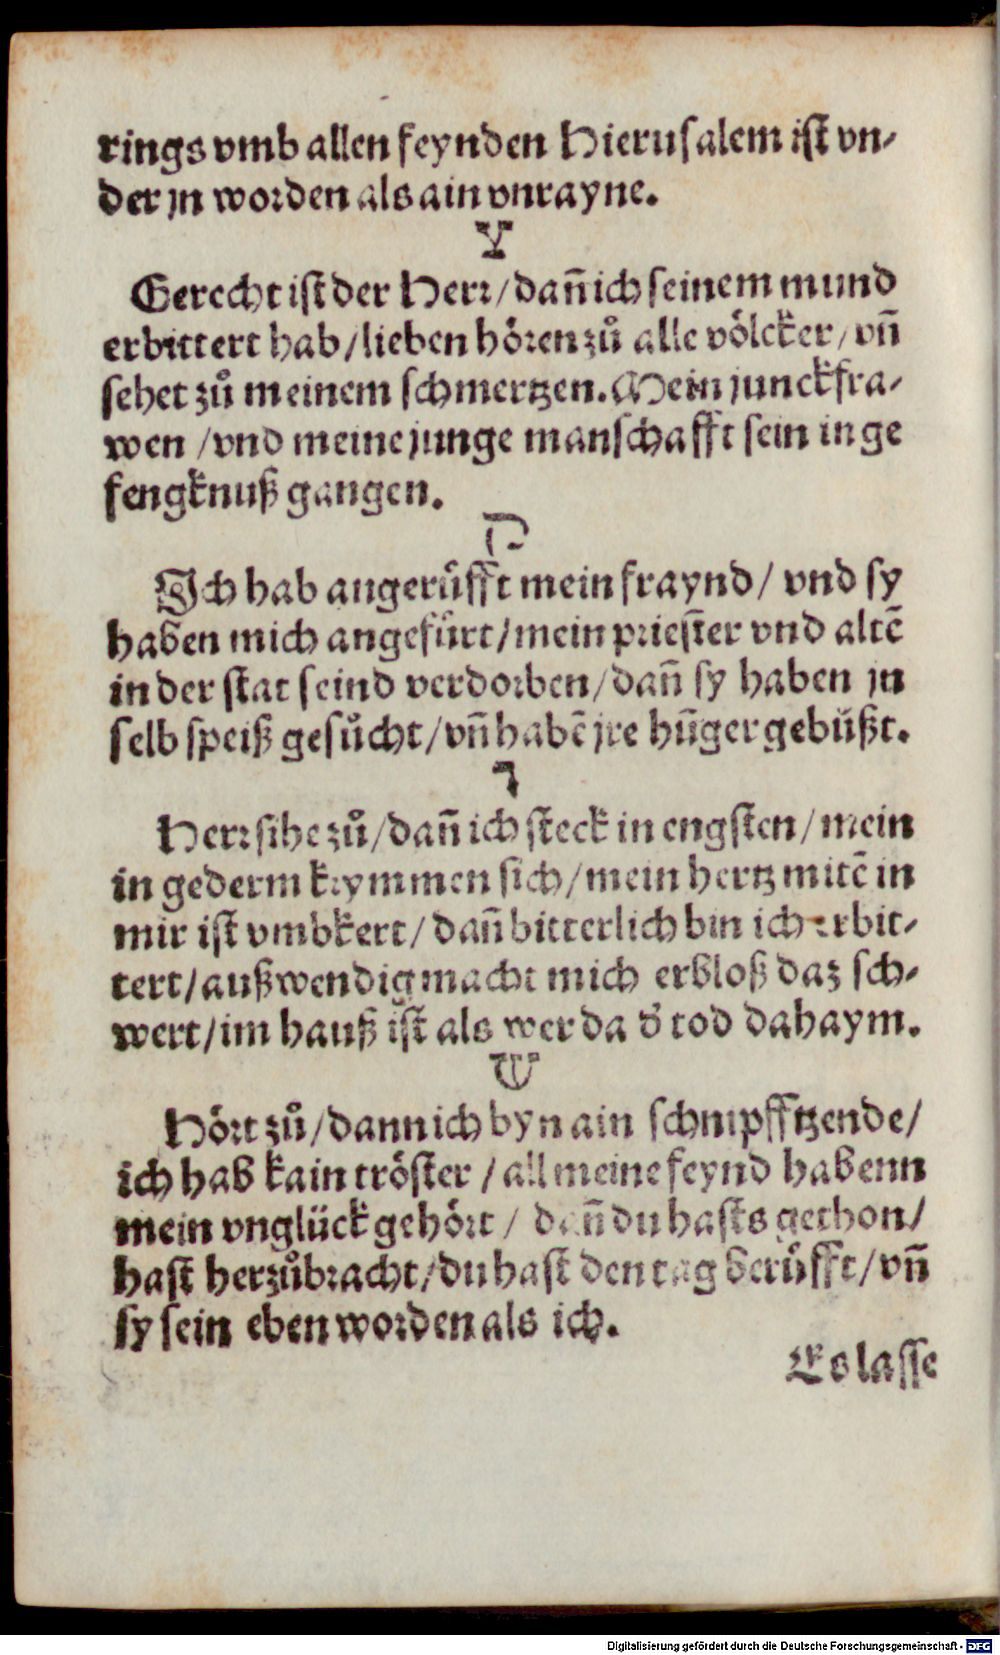 rings vmb allen feynden Hierusalem ist vn⸗
der jn worden als ain vnrayne.
צ
Gerecht ist der Herr/dan̄ ich seinem mund
erbittert hab/lieben hören zů alle völcker/vn̄
sehet zů meinem schmertzen. Mein junckfra⸗
wen /vnd meine junge manschafft sein in ge
fengknuß gangen.
ק
Ich hab angerüfft mein fraynd/ vnd sy
haben mich angefürt/mein priester vnd altē
in der stat seind verdorben/dan̄ sy haben jn
selb speiß gesůcht/vn̄ habē jre hūger gebüßt.
ר
Herr sihe zů/dan̄ ich steck in engsten/mein
in gederm krymmen sich/mein hertz mitē in
mir ist vmbkert/dan̄ bitterlich bin ich erbit⸗
tert/außwendig macht mich erbloß daz sch⸗
wert/im hauß ist als wer da d̄ tod dahaym.
ש
Hört zů/dann ich byn ain schnipfftzende/
ich hab kain tröster /all meine feynd habenn
mein vnglück gehört/ dan̄ du hasts gethon/
hast herzůbracht/du hast den tag berüfft/vn̄
sy sein eben worden als ich.
Es lasse
Digitalisierung gefördert durch die Deutsche Forschungsgemeinschaft - DFG